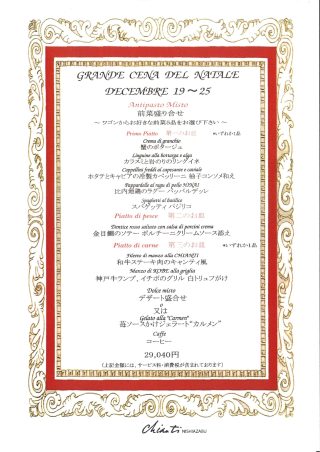 GRANDE CENA DEL NATALE
DECEMBRE 19〜25
Antipasto Misto
前菜盛り合せ
〜 ワゴンからお好きな前菜5品をお選び下さい 〜
Primo Piatto 第一のお皿 *いずれか1品
Crema di granchio
蟹のポタージュ
Linguine alla bottarga e alga
カラスミと岩のりのリングイネ
Cappellini freddi di capesante e caviale
ホタテとキャビアの冷製カペッリーニ 柚子コンソメ和え
Pappardelle al ragu di pollo HINAI
比内地鶏のラグー パッパルデッレ
Spaghetti al basilico
スパゲッティ バジリコ
Piatto di pesce 第二のお皿
Dentice rosso saltato con salsa di porcini crema
金目鯛のソテー ポルチーニクリームソース添え
Piatto di carne 第三のお皿 *いずれか1品
Manzo alla CHIANTI
和牛ステーキ肉のキャンティ風
Manzo di KOBE alla griglia
神戸牛ランプ、イチボのグリル 白トリュフがけ
Dolce misto
デザート盛合せ
o
又は
Gelato alla "Carmen"
苺ソースかけジェラート"カルメン"
Caffe
コーヒー
29,040円
(上記金額には、サービス料・消費税が含まれております)
Chianti NISHIAZABU